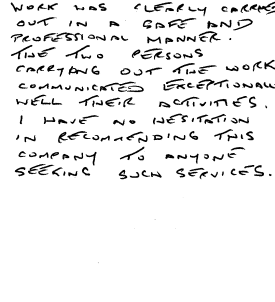 WORK WAS CLEARLY CARRIED
OUT IN A SAFE AND
PROFESSIONAL MANNER.
THE TWO PERSONS
CARRYING OUT THE WORK
COMMUNICATED EXCEPTIONALLY
WELL THEIR ACTIVITIES.
I HAVE NO HESITATION
IN RECOMMENDING THIS
COMPANY TO ANYONE
SEEKING SUCH SERVICES.